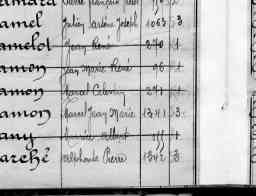 amel Julien Jarlène Joseph 1063 3
amelot Jean René 270 1
amon Jean Marie René 96 1
amon Marcel Célestin 271 1
amon Marcel Jean Marie 1341 3
any Albert 1
arché Alphonse Pierre 1342 3